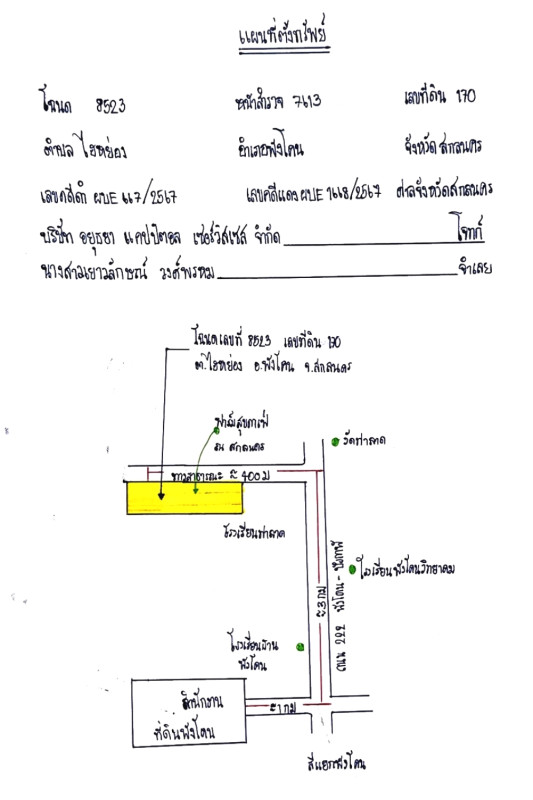 แผนที่ตั้งทรัพย์
โฉนด 8523 หน้าสำรวจ 7613 เลขที่ดิน 170
ตำบล ไฮหย่อง อำเภอพังโคน จังหวัด สกลนคร
เลขคดีดำ ผบE 667/2567 เลขคดีแดง ผบE 1668/2567 ศาลจังหวัดสกลนคร
บริษัท อยุธยา แคปปิตอล เซอร์วิสเซส จำกัด โจทก์
นางสาวเยาวลักษณ์ วงศ์พรหม จำเลย
โฉนดเลขที่ 8523 เลขที่ดิน 170
ต.ไฮหย่อง อ.พังโคน จ.สกลนคร
ฟาร์มสุขกาเฟ่
รน สกลนคร
วัดท่าลาด
ทางสาธารณะ ≈ 400 ม
โรงเรียนท่าลาด
โรงเรียนพังโคนวิทยาคม
ถนน 222 พังโคน - บึงกาฬ
≈ 3 กม
โรงเรียนบ้าน
พังโคน
สำนักงาน
ที่ดินพังโคน
≈ 1 กม
สี่แยกพังโคน